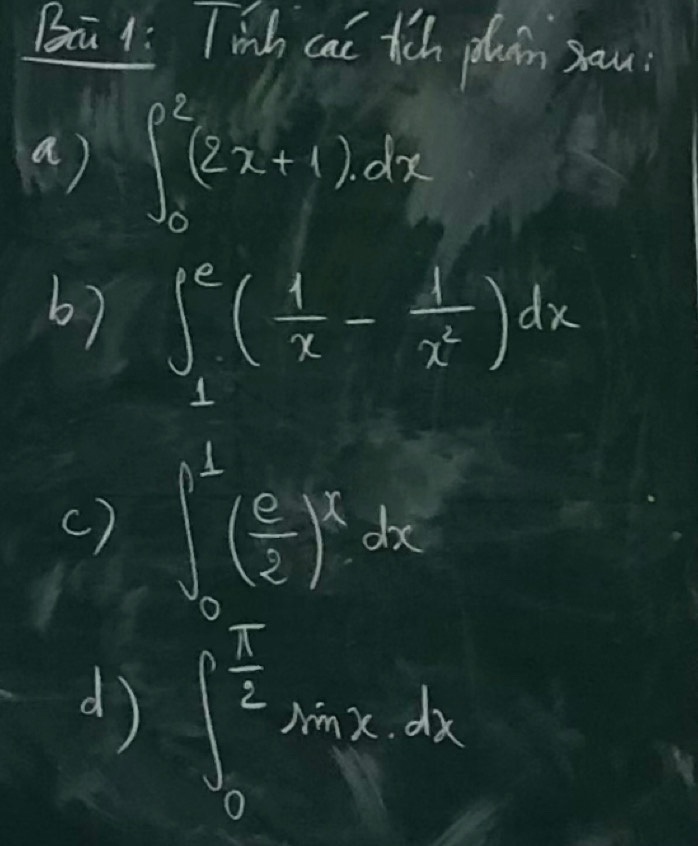 Bài 1: Tính các tích phân sau:
a) ∫₀² (2x+1).dx
b) ∫₁ᵉ (1/x - 1/x²) dx
c) ∫₀¹ (e/2)ˣ dx
d) ∫₀^(π/2) sin x . dx